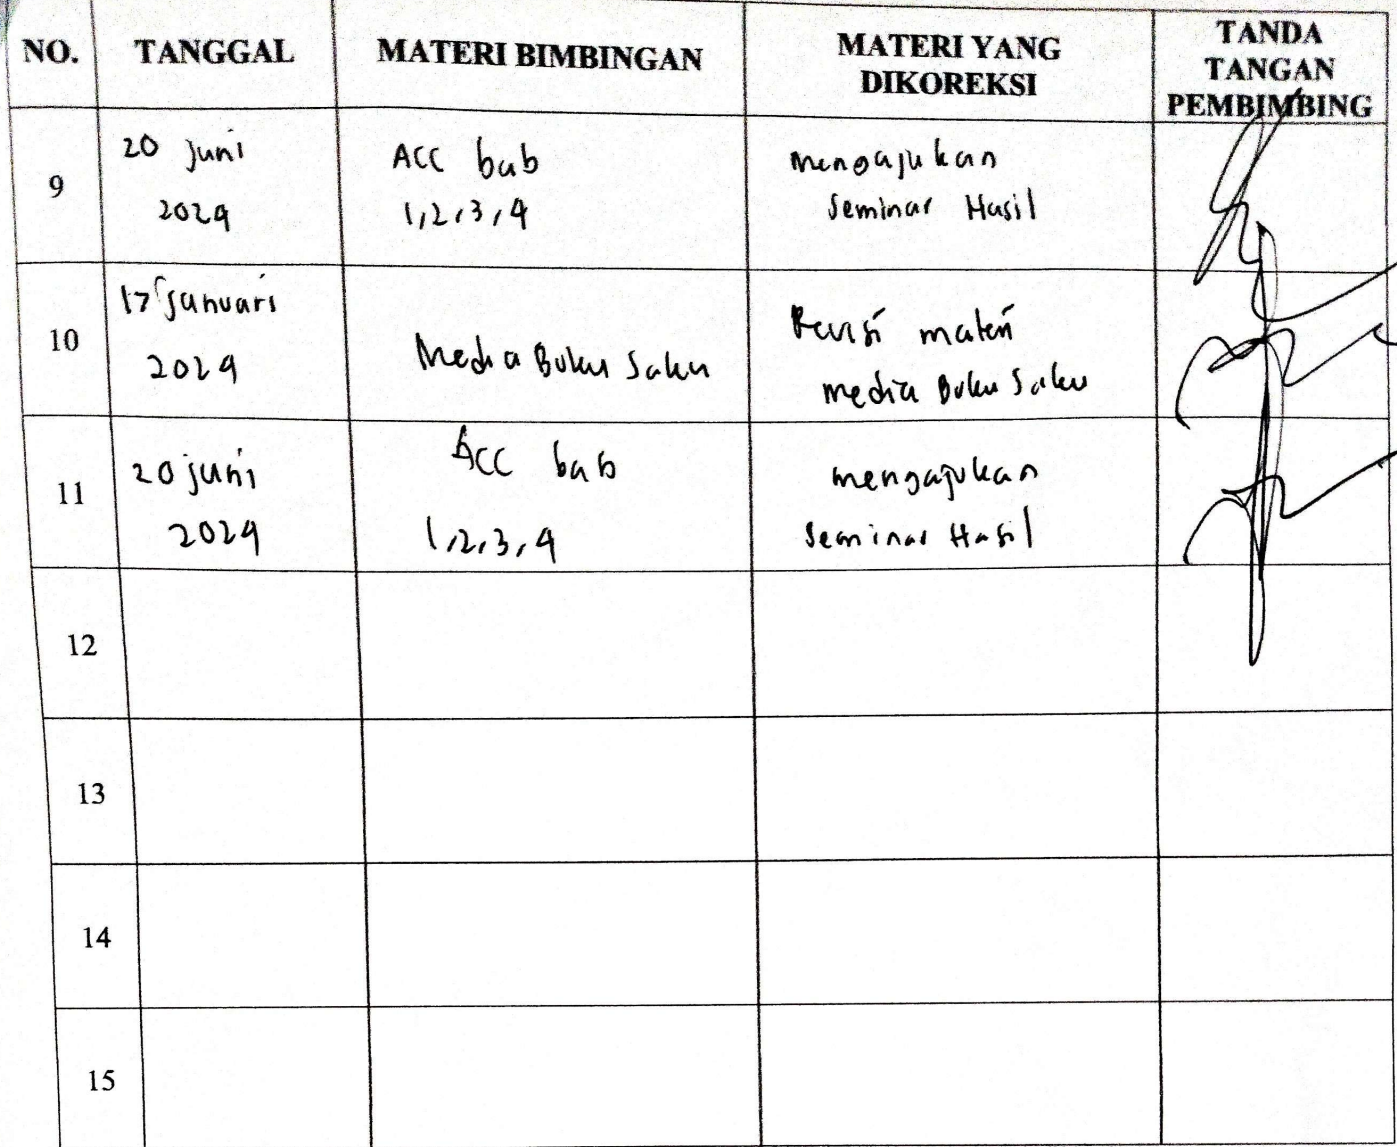 NO. TANGGAL MATERI BIMBINGAN MATERI YANG DIKOREKSI TANDA TANGAN PEMBIMBING
9 20 juni 2024 ACC bab 1,2,3,4 mengajukan Seminar Hasil
10 17 Januari 2024 Media Buku Saku Revisi materi media Buku Saku
11 20 juni 2024 ACC bab 1,2,3,4 mengajukan Seminar Hasil
12
13
14
15